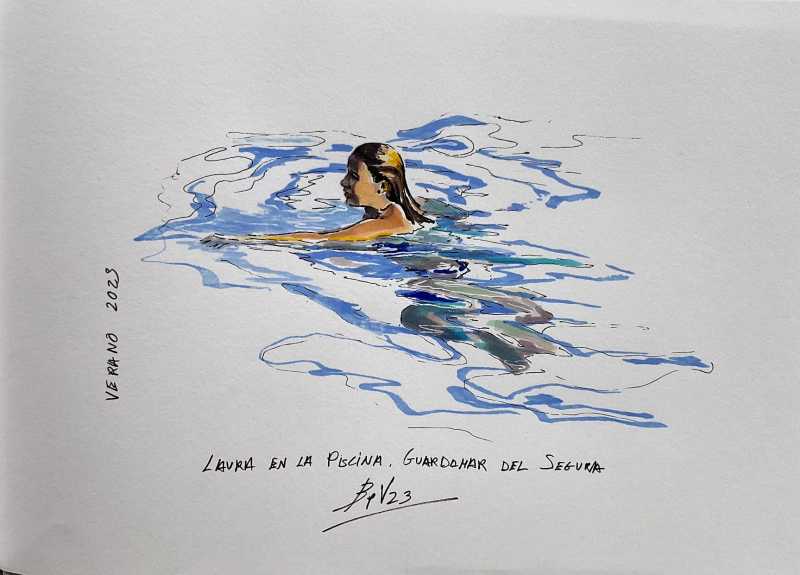 VERANO 2023
LAURA EN LA PISCINA. GUARDAMAR DEL SEGURA
BpV23